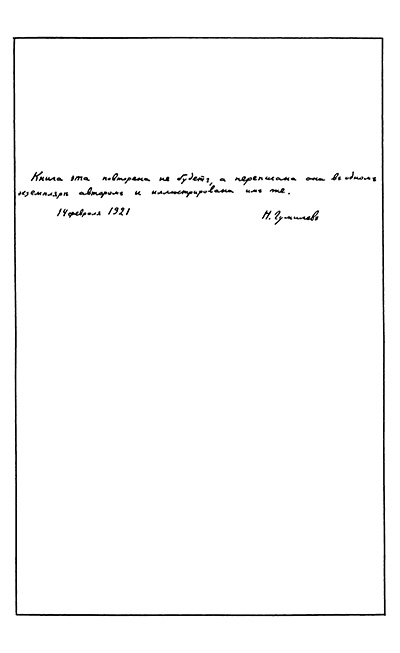 Книга эта повторена не будетъ, а переписана она въ одномъ
экземпляре авторомъ и иллюстрирована имъ же.
14 февраля 1921 Н. Гумилевъ